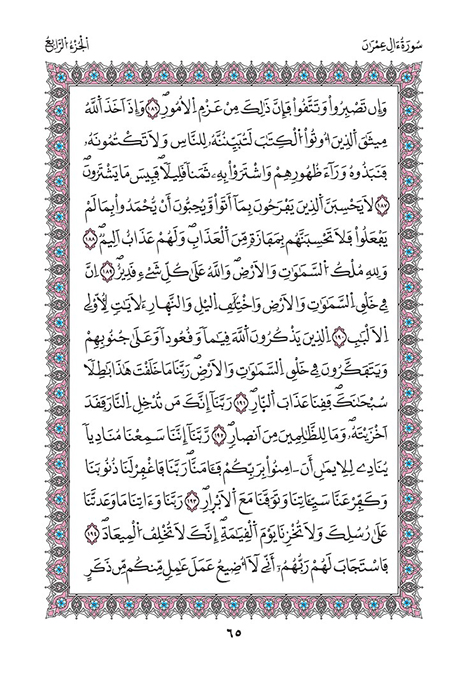 سُورَةُ ءَالِ عِمْرَٰنَ
اَلْجُزْءُ الرَّابِعُ
وَإِن تَصْبِرُواْ وَتَتَّقُواْ فَإِنَّ ذَٰلِكَ مِنْ عَزْمِ اِلْأُمُورِۖ ١٨٦ وَإِذَ اَخَذَ اَللَّهُ
مِيثَٰقَ اَلذِينَ أُوتُواْ اُلْكِتَٰبَ لَتُبَيِّنُنَّهُۥ لِلنَّاسِ وَلَا تَكْتُمُونَهُۥ
فَنَبَذُوهُ وَرَآءَ ظُهُورِهِمْ وَاشْتَرَوْاْ بِهِۦ ثَمَناٗ قَلِيلاٗۖ فَبِيسَ مَا يَشْتَرُونَۖ
١٨٧ لَا يَحْسِبَنَّ اَلذِينَ يَفْرَحُونَ بِمَآ أَتَواْ وَّيُحِبُّونَ أَنْ يُّحْمَدُواْ بِمَا لَمْ
يَفْعَلُواْ فَلَا تَحْسِبَنَّهُم بِمَفَازَةٖ مِّنَ اَلْعَذَابِۖ وَلَهُمْ عَذَابٌ اَلِيمٞۖ ١٨٨
وَلِلهِ مُلْكُ اُلسَّمَٰوَٰتِ وَالْأَرْضِۖ وَاللَّهُ عَلَىٰ كُلِّ شَےْءٖ قَدِيرٌۖ ١٨٩ اِنَّ
فِے خَلْقِ اِلسَّمَٰوَٰتِ وَالْأَرْضِ وَاخْتِلَٰفِ اِليْلِ وَالنَّهَارِ ءَلَأيَٰتٖ لِّأُوْلِے
اِلْأَلْبَٰبِ ١٩٠ اِلذِينَ يَذْكُرُونَ اَللَّهَ قِيَٰماٗ وَقُعُوداٗ وَعَلَىٰ جُنُوبِهِمْ
وَيَتَفَكَّرُونَ فِے خَلْقِ اِلسَّمَٰوَٰتِ وَالْأَرْضِۖ رَبَّنَا مَا خَلَقْتَ هَٰذَا بَٰطِلاٗ
سُبْحَٰنَكَۖ فَقِنَا عَذَابَ اَلنّ۪ارِۖ ١٩١ رَبَّنَآ إِنَّكَ مَن تُدْخِلِ اِلنَّارَ فَقَدَ
اَخْزَيْتَهُۥۖ وَمَا لِلظَّٰلِمِينَ مِنَ اَنص۪ارٖۖ ١٩٢ رَّبَّنَآ إِنَّنَا سَمِعْنَا مُنَادِياٗ
يُنَادِے لِلِايمَٰنِ أَنَ اٰمِنُواْ بِرَبِّكُمْ فَـَٔامَنَّاۖ رَبَّنَا فَاغْفِرْ لَنَا ذُنُوبَنَا
وَكَفِّرْ عَنَّا سَيِّـَٔاتِنَا وَتَوَفَّنَا مَعَ اَلْأَبْر۪ارِۖ ١٩٣ رَبَّنَا وَءَاتِنَا مَا وَعَدتَّنَا
عَلَىٰ رُسُلِكَ وَلَا تُخْزِنَا يَوْمَ اَلْقِيَٰمَةِۖ إِنَّكَ لَا تُخْلِفُ اُلْمِيعَادَۖ ١٩٤
فَاسْتَجَابَ لَهُمْ رَبُّهُمُۥٓ أَنِّے لَآ أُضِيعُ عَمَلَ عَٰمِلٖ مِّنكُم مِّن ذَكَرٍ
٦٥